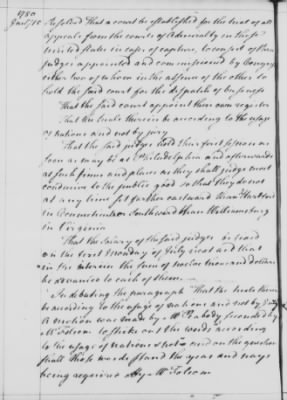 1780
Jany. 15
Resolved That a court be established for the trial of all
appeals from the courts of Admiralty in these
United States in cases of capture, to consist of three
judges appointed and commissioned by Congress
either two of whom in the absence of the other to
hold the said court for the despatch of business
That the said court appoint their own register
That the trials therein be according to the usage
of nations and not by jury
That the said judges hold their first session as
soon as may be at Philadelphia and afterwards
at such times and places as they shall judge most
conducive to the public good so that they do not
at any time sit farther eastward than Hartford
in Connecticut or Southward than Williamsburg
in Virginia
That the salary of the said judges be fixed
on the first Monday of July next and that
in the interim the sum of twelve thousand dollars
be advanced to each of them
In debating the paragraph "That the trials therein
be according to the usage of nations and not by jury"
A motion was made by Mr Peabody seconded by
Mr Folsom to strike out the words "according
to the usage of nations &" and on the question
shall those words stand the yeas and nays
being required by Mr Folsom